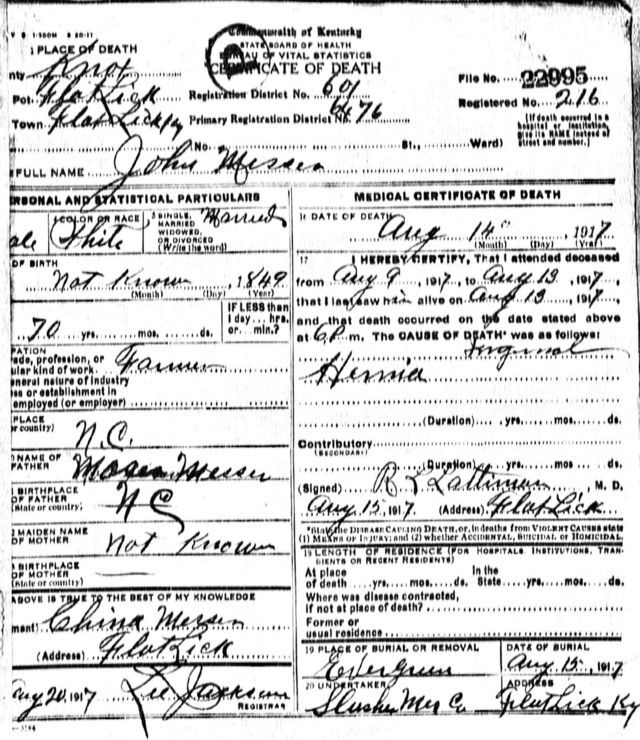 V S 1-300M 8 20-11
Commonwealth of Kentucky
STATE BOARD OF HEALTH
BUREAU OF VITAL STATISTICS
CERTIFICATE OF DEATH
1 PLACE OF DEATH
nty Knox
Pct. Flat Lick
Town Flat Lick Ky
Registration District No. 601
Primary Registration District No. 6476
File No. 22995
Registered No. 216
(No. St., Ward)
[If death occurred in a
hospital or institution,
give its NAME instead of
street and number.]
FULL NAME John Messer
PERSONAL AND STATISTICAL PARTICULARS
ale
COLOR OR RACE
White
5 SINGLE,
MARRIED
WIDOWED,
OR DIVORCED
(Write the word)
Married
OF BIRTH
Not Known, 1849
(Month) (Day) (Year)
70 yrs. mos. ds.
IF LESS than
1 day... hrs.
or... min.?
PATION
ade, profession, or
ular kind of work
Farmer
eneral nature of industry
ss or establishment in
employed (or employer)
PLACE
or country)
N.C.
NAME OF
FATHER
Moses Messer
BIRTHPLACE
OF FATHER
(State or country)
NC
MAIDEN NAME
OF MOTHER
Not Known
BIRTHPLACE
OF MOTHER
(State or country)
ABOVE IS TRUE TO THE BEST OF MY KNOWLEDGE
mant) China Messer
(Address) Flat Lick
Aug 20 1917 Lee Jackson
REGISTRAR
MEDICAL CERTIFICATE OF DEATH
DATE OF DEATH
Aug 14, 1917
(Month) (Day) (Year)
17 I HEREBY CERTIFY, That I attended deceased
from Aug 9, 1917, to Aug 13, 1917,
that I last saw him alive on Aug 13, 1917,
and that death occurred on the date stated above
at 6 P. m. The CAUSE OF DEATH* was as follows:
Inguinal
Hernia
(Duration) yrs. mos. ds.
Contributory
(SECONDARY)
(Duration) yrs. mos. ds.
(Signed) R L Lattimore, M. D.
Aug 15, 1917 (Address) Flat Lick
*State the DISEASE CAUSING DEATH, or, in deaths from VIOLENT CAUSES state
(1) MEANS OF INJURY; and (2) whether ACCIDENTAL, SUICIDAL or HOMICIDAL.
18 LENGTH OF RESIDENCE (FOR HOSPITALS, INSTITUTIONS, TRAN-
SIENTS OR RECENT RESIDENTS)
At place In the
of death yrs. mos. ds. State yrs. mos. ds.
Where was disease contracted,
if not at place of death?
Former or
usual residence
19 PLACE OF BURIAL OR REMOVAL
Evergreen
DATE OF BURIAL
Aug 15, 1917
20 UNDERTAKER
Slusher Mer C.
ADDRESS
Flat Lick Ky